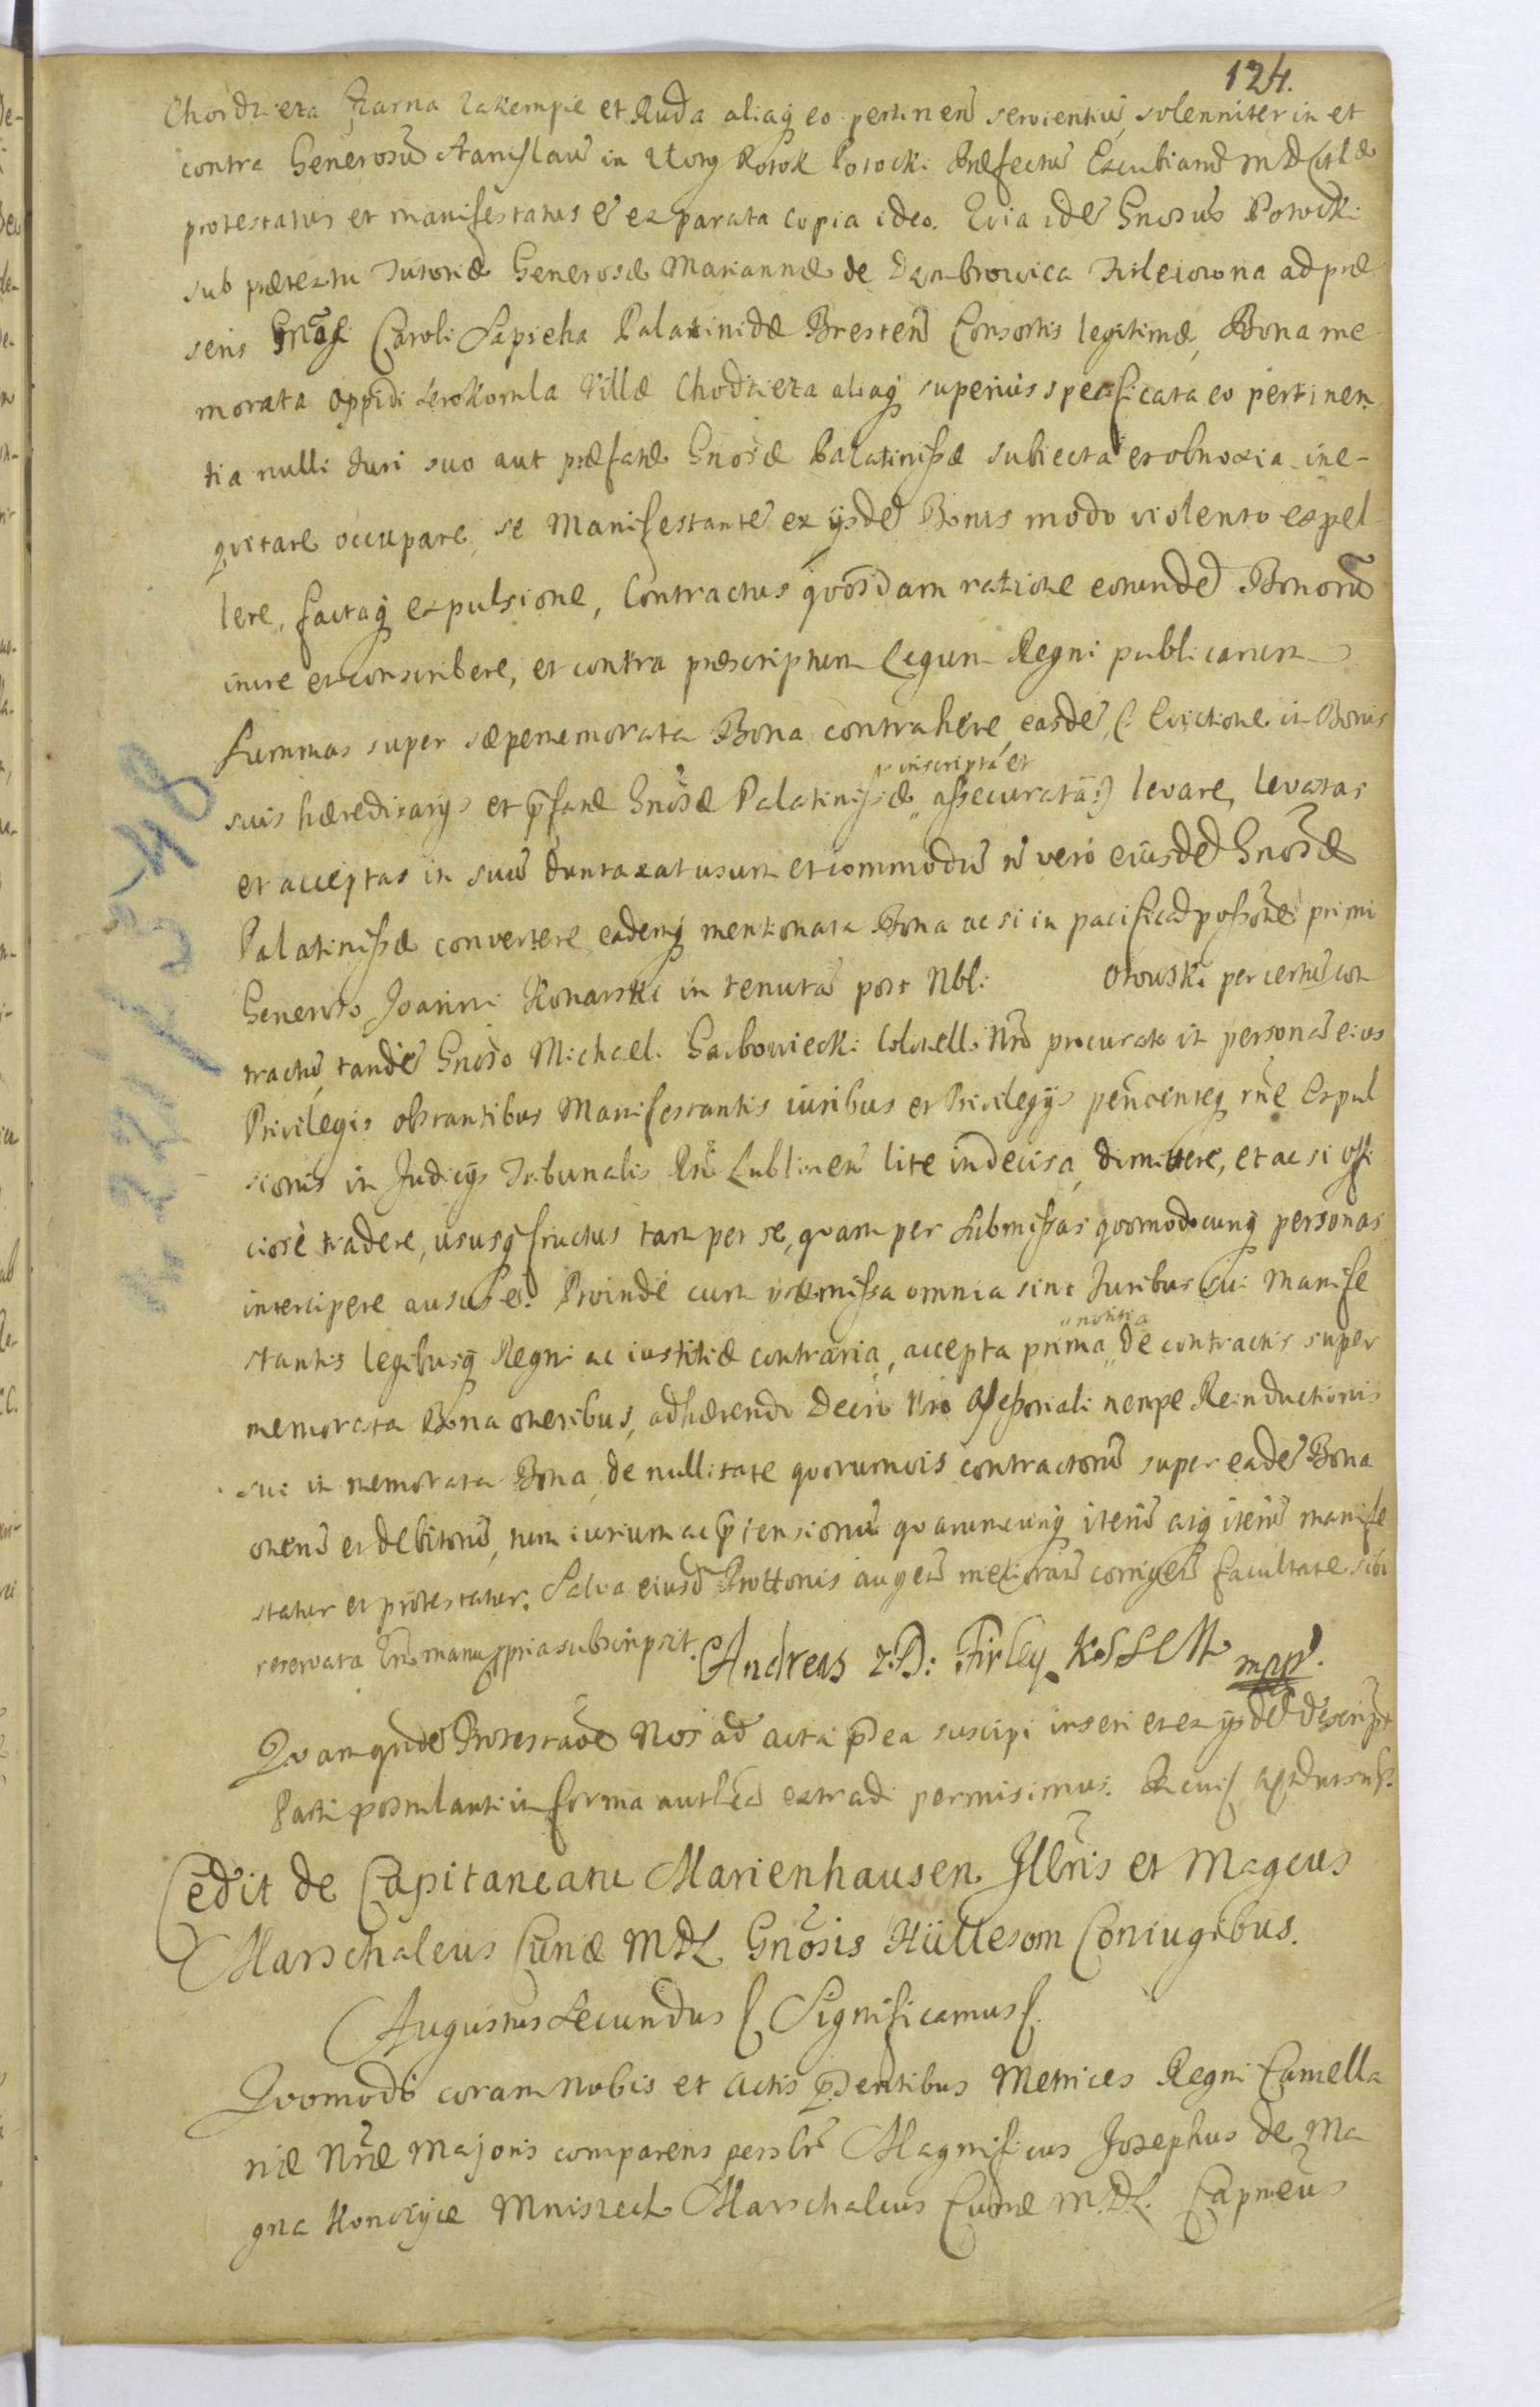 124.
Chodzieza Czarna Zakempie et Ruda aliaq eo pertinen servientiũ, solenniter in et
contra Generosũ Stanislaũ in Potok Potocki Præfectũ Excubiarũ MD
protestatus et manifestatus ẽ ex parata copia ideo. Qvia idẽ Gnosus Potocki
sub prætextu Tutoriæ Generosæ Mariannæ de Dąmbrowica Firleiowna ad præ
sens Gnosi Caroli Sapieha Palatinidæ Bresten Consortis legitimæ, Bona me
morata oppidi Serokomla Villæ Chodzieza aliaq superius specificata eo pertinen
tia nulli Juri suo aut præfatæ Gnosæ Palatinissæ subiecta et obnoxia ine-
qvitare occupare, se Manifestantẽ ex ijsdẽ Bonis modo violento expel
lere, factaq expulsione, Contractus qvosdam ratione eorundẽ Bonorũ
inire et conscribere, et contra præscriptum Legum Regni publicarum
Summas super sæpememorata Bona contrahere, easdẽ, (: Evictione in Bonis
inscripta et
suis hæreditarijs et pfatæ Gnosæ Palatinissæ „ assecurata :) levare, levatas
et acceptas in suũ duntaxat usum et commodũ ñ vero eiusdẽ Gnosæ
Palatinissæ convertere, eademq mentionata Bona ac si in pacifica possone primi
Generoso Joanni Konarski in tenutã post Nbli otowski per certũ con
tractũ, tandẽ Gnoso Michaeli Garbowiecki Colonello Nro procurato in personã eius
Privilegio obstantibus Manifestantis iuribus et Privilegijs penčenteq rne Expul
sionis in Judicijs Tribunalis Rni Lublinen lite indecisa, dimittere, et ac si offi
ciosè tradere, ususq fructus tam per se, qvam per submissas qvomodocunq personas
intercipere ausus ẽ. Proindè cum præmissa omnia sint Juribus sui Manife
„ notitia
stantis legibusq Regni ac iustitiæ contraria, accepta prima „ de contractis super
memorata Bona oneribus, adhærendo Decro Nro Assessoriali nempe Reinductionis
sui in memorata Bona, de nullitate qvorumvis contractorũ super eadẽ Bona
onerũ et debitorũ, tum iurium ac prætensionũ qvarumcunq iterũ atq iterũ manife
statur et protestatur. Salva eiusd Prottonis augen meliorũ corrigen facultate sibi
reservata manu ppria subscripsit. Andreas z D: Firley KSSEM mpp.
Qvamqvidẽ Protestaõe Nos ad acta p̃ea suscipi inseri et ex ijsdẽ descript
Parti postulanti in forma autheã extradi permisimus. In cuiq
Cedit de Capitaneatu Marienhausen. Jllris et Magcus
Marschalcus Curiæ MDL Gnosis Hüllesom Coniugibus.
Augustus Secundus Significamus
Qvomodo coram Nobis et Actis p̃dentibus Metrices Regni Cancella
riæ Nræ Majoris comparens persolr Magnificus Josephus de Ma
gna Konczyce Mniszech Marschalcus Curiæ M.D.L. Capneus